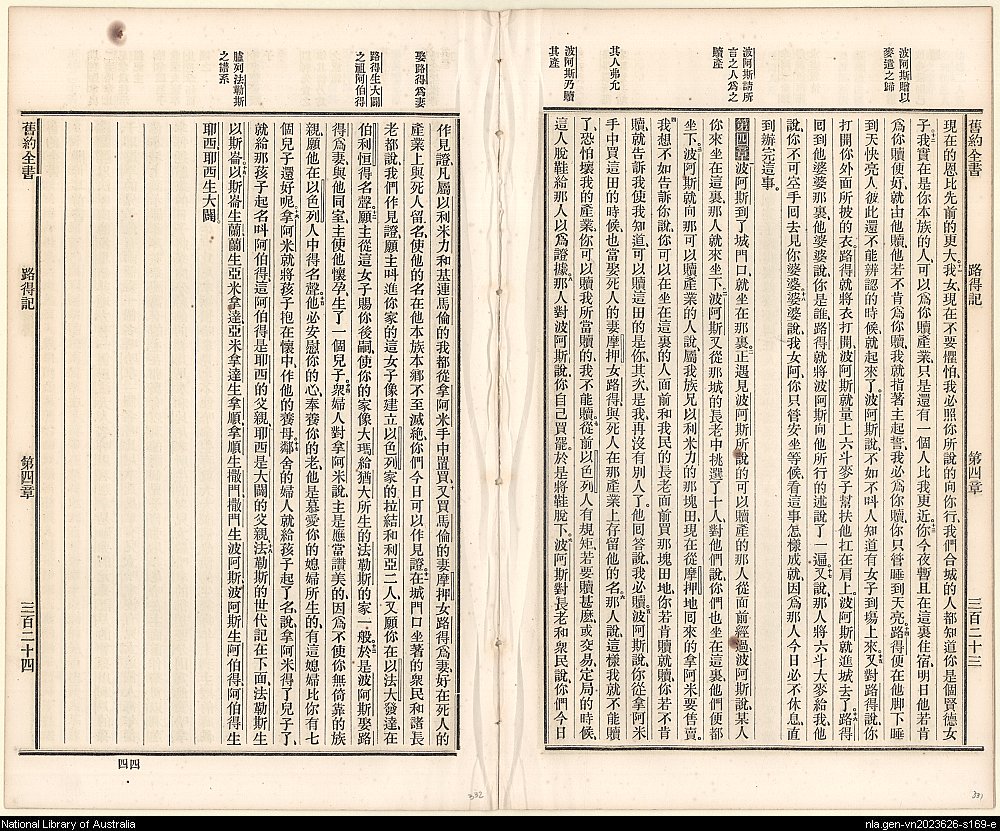 波阿斯贈以
麥遣之歸
波阿斯請所
言之人爲之
贖產
其人弗允
波阿斯乃贖
其產
舊約全書
路得記
第四章
三百二十三
現在的恩比先前的更大我女現在不要懼怕我必照你所說的向你行我們合城的人都知道你是個賢德女
子我實在是你本族的人可以爲你贖產業只是還有一個人比我更近你今夜暫且在這裏住宿明日他若肯
爲你贖便好就由他贖他若不肯爲你贖我就指著主起誓我必爲你贖你只管睡到天亮路得便在他脚下睡
到天快亮人彼此還不能辨認的時候就起來了波阿斯說不如不呌人知道有女子到塲上來又對路得說你
打開你外面所披的衣路得就將衣打開波阿斯就量上六斗麥子幫扶他扛在肩上波阿斯就進城去了路得
回到他婆婆那裏他婆婆說你是誰路得就將波阿斯向他所行的述說了一遍又說那人將六斗大麥給我他
說你不可空手回去見你婆婆婆婆說我女阿你只管安坐等候看這事怎樣成就因爲那人今日必不休息直
到辦完這事
第四章波阿斯到了城門口就坐在那裏正遇見波阿斯所說的可以贖產的那人從面前經過波阿斯說某人
你來坐在這裏那人就來坐下波阿斯又從那城的長老中挑選了十人對他們說你們也坐在這裏他們便都
坐下波阿斯就向那可以贖產業的人說屬我族兄以利米力的那塊田現在從摩押地回來的拿阿米要售賣
我想不如告訴你說你可以在坐在這裏的人面前和我民的長老面前買那塊田地你若肯贖就贖你若不肯
贖就告訴我使我知道可以贖這田的是你其次是我再沒有別人了他回答說我必贖波阿斯說你從拿阿米
手中買這田的時候也當娶死人的妻摩押女路得與死人在那產業上存留他的名那人說這樣我就不能贖
了恐怕壞我的產業你可以贖我所當贖的我不能贖從前以色列人有規矩若要贖甚麽或交易定局的時候
這人脫鞋給那人以爲證據那人對波阿斯說你自己買罷於是將鞋脫下波阿斯對長老和衆民說你們今日
娶路得爲妻
路得生大闢
之祖阿伯得
臚列法勒斯
之譜系
作見證凡屬以利米力和基連馬倫的我都從拿阿米手中置買又買馬倫的妻摩押女路得爲妻好在死人的
產業上與死人留名使他的名在他本族本鄉不至滅絕你們今日可以作見證在城門口坐著的衆民和諸長
老都說我們作見證願主呌進你家的這女子像建立以色列家的拉結和利亞二人又願你在以法大發達在
伯利恒得名聲願主從這女子賜你後嗣使你的家像大瑪給猶大所生的法勒斯的家一般於是波阿斯娶路
得爲妻與他同室主使他懷孕生了一個兒子衆婦人對拿阿米說主是應當讚美的因爲不使你無倚靠的族
親願他在以色列人中得名聲他必安慰你的心奉養你的老他是慕愛你的媳婦所生的有這媳婦比你有七
個兒子還好呢拿阿米就將孩子抱在懷中作他的養母鄰舍的婦人就給孩子起了名說拿阿米得了兒子了
就給那孩子起名呌阿伯得這阿伯得是耶西的父親耶西是大闢的父親法勒斯的世代記在下面法勒斯生
以斯崙以斯崙生蘭蘭生亞米拿達亞米拿達生拿順拿順生撒門撒門生波阿斯波阿斯生阿伯得阿伯得生
耶西耶西生大闢
舊約全書
路得記
第四章
三百二十四
四四
332
331
National Library of Australia
nla.gen-vn2023626-s169-e